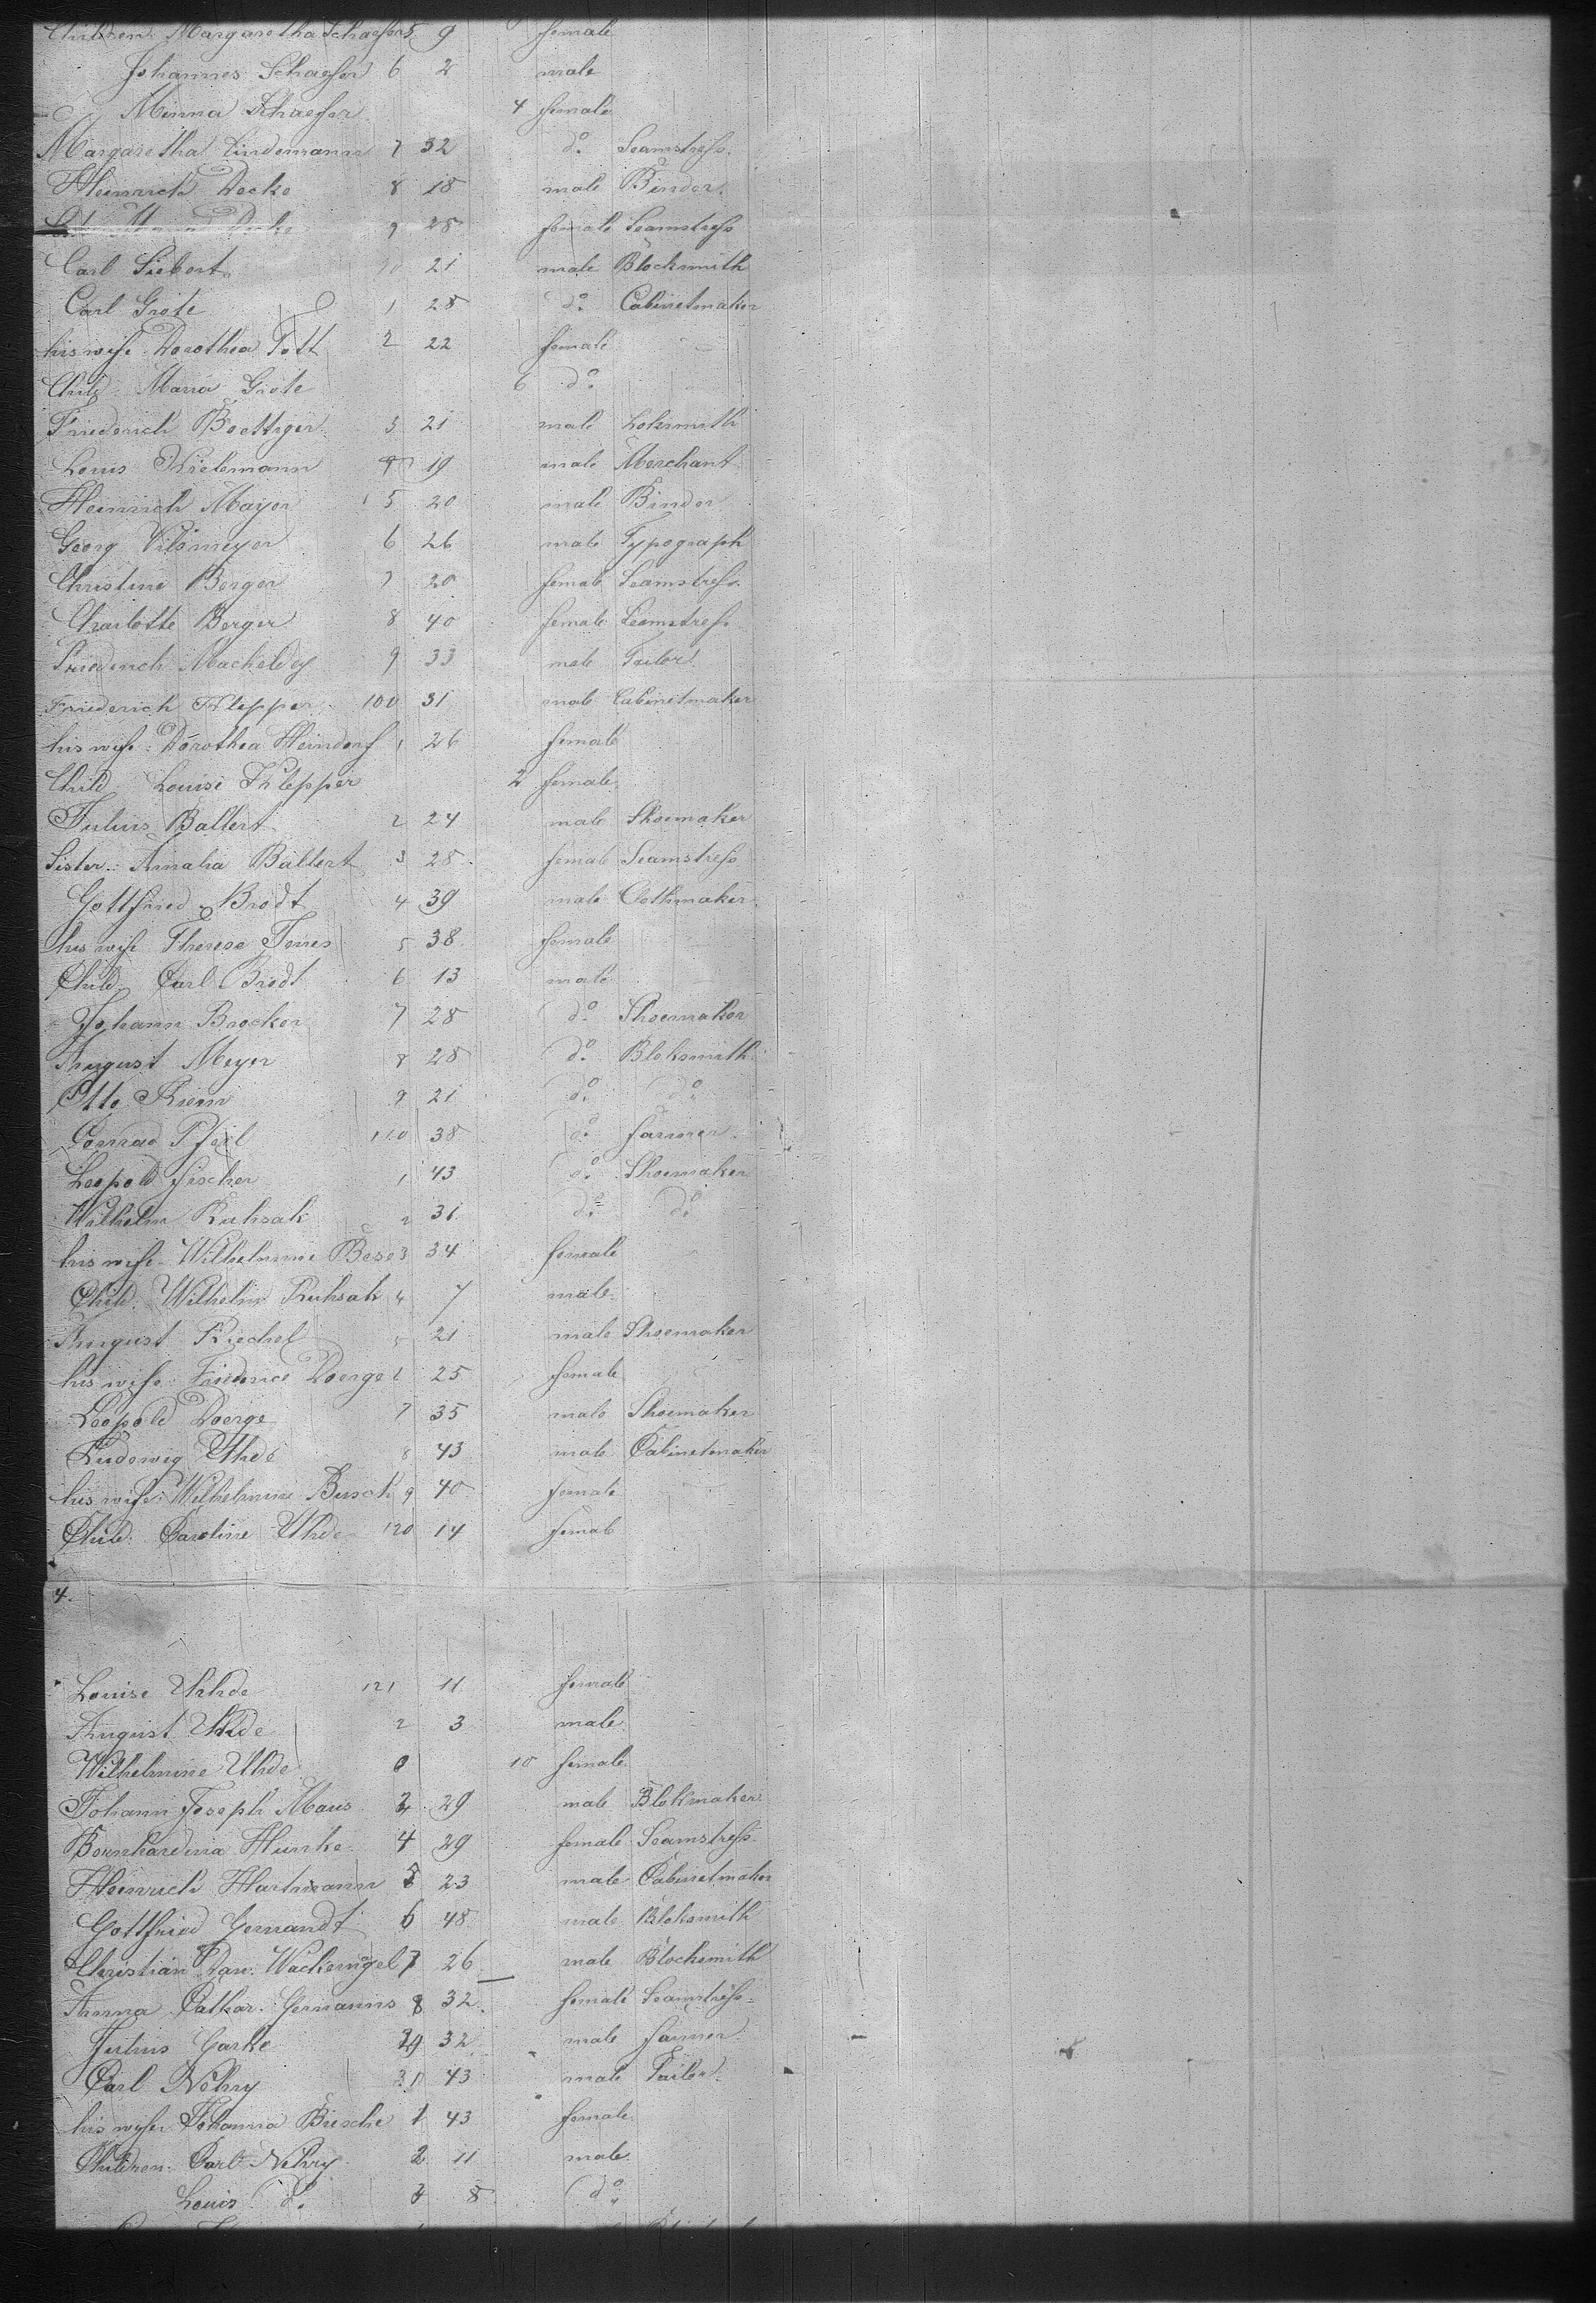 Children: Margaretha Schaefer 5 9 female
Johannes Schaefer 6 2 male
Minna Schaefer 4 female
Margaretha Lindemann 7 32 do. Seamstress.
Heinrich Decke 8 18 male Binder.
9 28 female Seamstress
Carl Siebert 90 21 male Blocksmith
Carl Grote 1 28 do. Cabinetmaker
his wife: Dorothea Tott 2 22 female
Child: Maria Grote 6 do.
Friederich Boettiger 3 21 male Loksmith
Louis Thielemann 4 19 male Merchant
Heinrich Mayer 5 20 male Binder
Georg Vilsmeyer 6 26 male Typograph
Christine Berger 7 20 female Seamstress.
Charlotte Berger 8 40 female Seamstress
Friederich Macheldey 9 33 male Tailor.
Friederich Klepper 100 31 male Cabinetmaker
his wife: Dorothea Heindorf 1 26 female
Child Louise Klepper 2 female.
Julius Baltert 2 24 male Shoemaker
Sister: Amalia Baltert 3 28 female Seamstress
Gottfried Brodt 4 39 male Clothmaker.
his wife Therese Torres 5 38 female
Child: Carl Brodt 6 13 male
Johann Brocker 7 28 do. Shoemaker
August Meyer 8 28 do. Bloksmith.
Otto Riem 9 21 do. do.
Conrad Pfeil 110 38 do. farmer.
Leopold Fischer 1 43 do. Shoemaker
Wilhelm Ruhsak 2 31 do. do.
his wife: Wilhelmine Bese 3 34 female
Child: Wilhelm Ruhsak 4 7 male.
August Riechel 5 21 male Shoemaker
his wife: Friederice Doerge 6 25 female
Leopold Doerge 7 35 male Shoemaker
Ludewig Uhde 8 43 male Cabinetmaker
his wife: Wilhelmine Busch 9 40 female
Child: Caroline Uhde 120 14 female
4.
Louise Uhde 121 11 female
August Uhde 2 3 male.
Wilhelmine Uhde 10 female.
Johann Joseph Maus 29 male Blokmaker
Bernhardina Hunke 4 29 female Seamstress.
Heinrich Hartmann 5 23 male Cabinetmaker
Gottfried Gernandt 6 48 male Bloksmith
Christian Dan. Wackernagel 7 26 male Blocksmith
Anna Cathar. Germanns 8 32. female Seamstress
Julius Garke 29 32 male farmer.
Carl Nehry 30 43 male Tailor.
his wife: Johanna Biesche 1 43 female.
Children: Carl Nehry 2 11 male.
Louis do. 3 8 do.